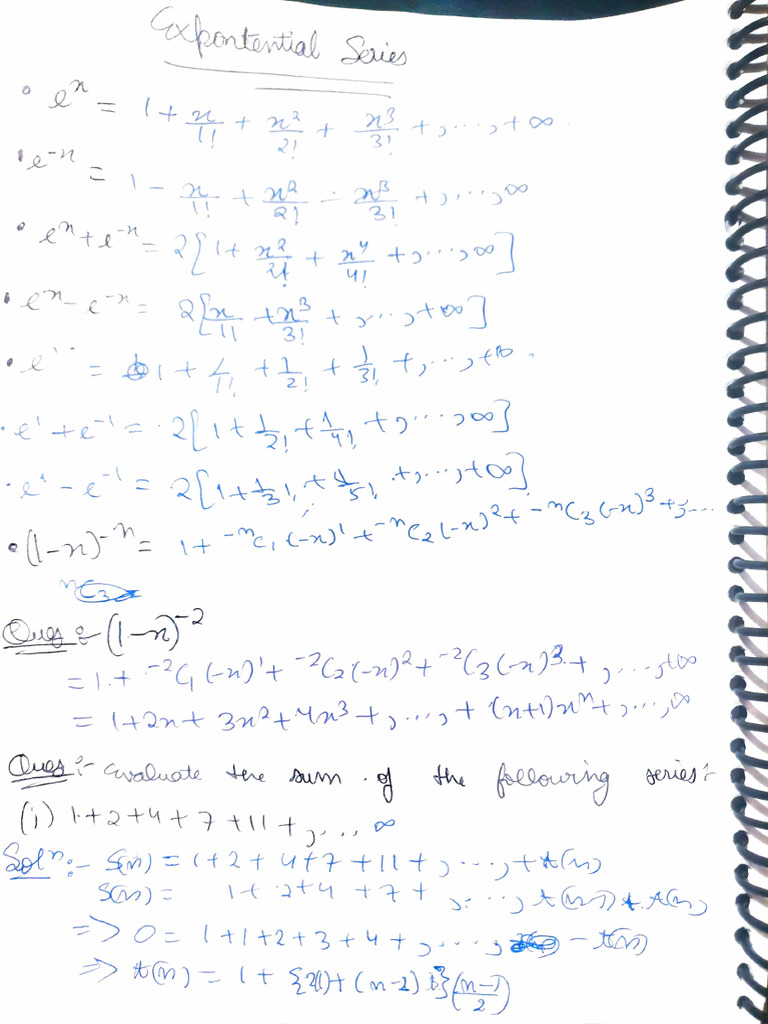 Expontential Series
• e^x = 1 + x/1! + x²/2! + x³/3! + , ...., + ∞
• e^-x = 1 - x/1! + x²/2! - x³/3! + , ..., ∞
• e^x + e^-x = 2[1 + x²/2! + x⁴/4! + , ..., ∞]
• e^x - e^-x = 2[x/1! + x³/3! + , ..., + ∞]
• e¹ = 1 + 1/1! + 1/2! + 1/3! + , ..., + ∞
• e¹ + e^-1 = 2[1 + 1/2! + 1/4! + , ..., ∞]
• e¹ - e^-1 = 2[1 + 1/3! + 1/5! + , ..., + ∞]
• (1-x)^-n = 1 + ^-nC₁(-x)¹ + ^-nC₂(-x)² + ^-nC₃(-x)³ + , ...
Ques :- (1-x)^-2
= 1 + ^-2C₁(-x)¹ + ^-2C₂(-x)² + ^-2C₃(-x)³ + , ...., +∞
= 1 + 2x + 3x² + 4x³ + , ...., + (n+1)x^n + , ...., ∞
Ques :- Evaluate the sum of the following series :-
(i) 1 + 2 + 4 + 7 + 11 + , .... ∞
Solⁿ :- S(n) = 1 + 2 + 4 + 7 + 11 + , ...., + t(n)
S(n) = 1 + 2 + 4 + 7 + , ...., t(n-1) + t(n)
=> 0 = 1 + 1 + 2 + 3 + 4 + , ...., - t(n)
=> t(n) = 1 + {2(1) + (n-2)1}((n-1)/2)